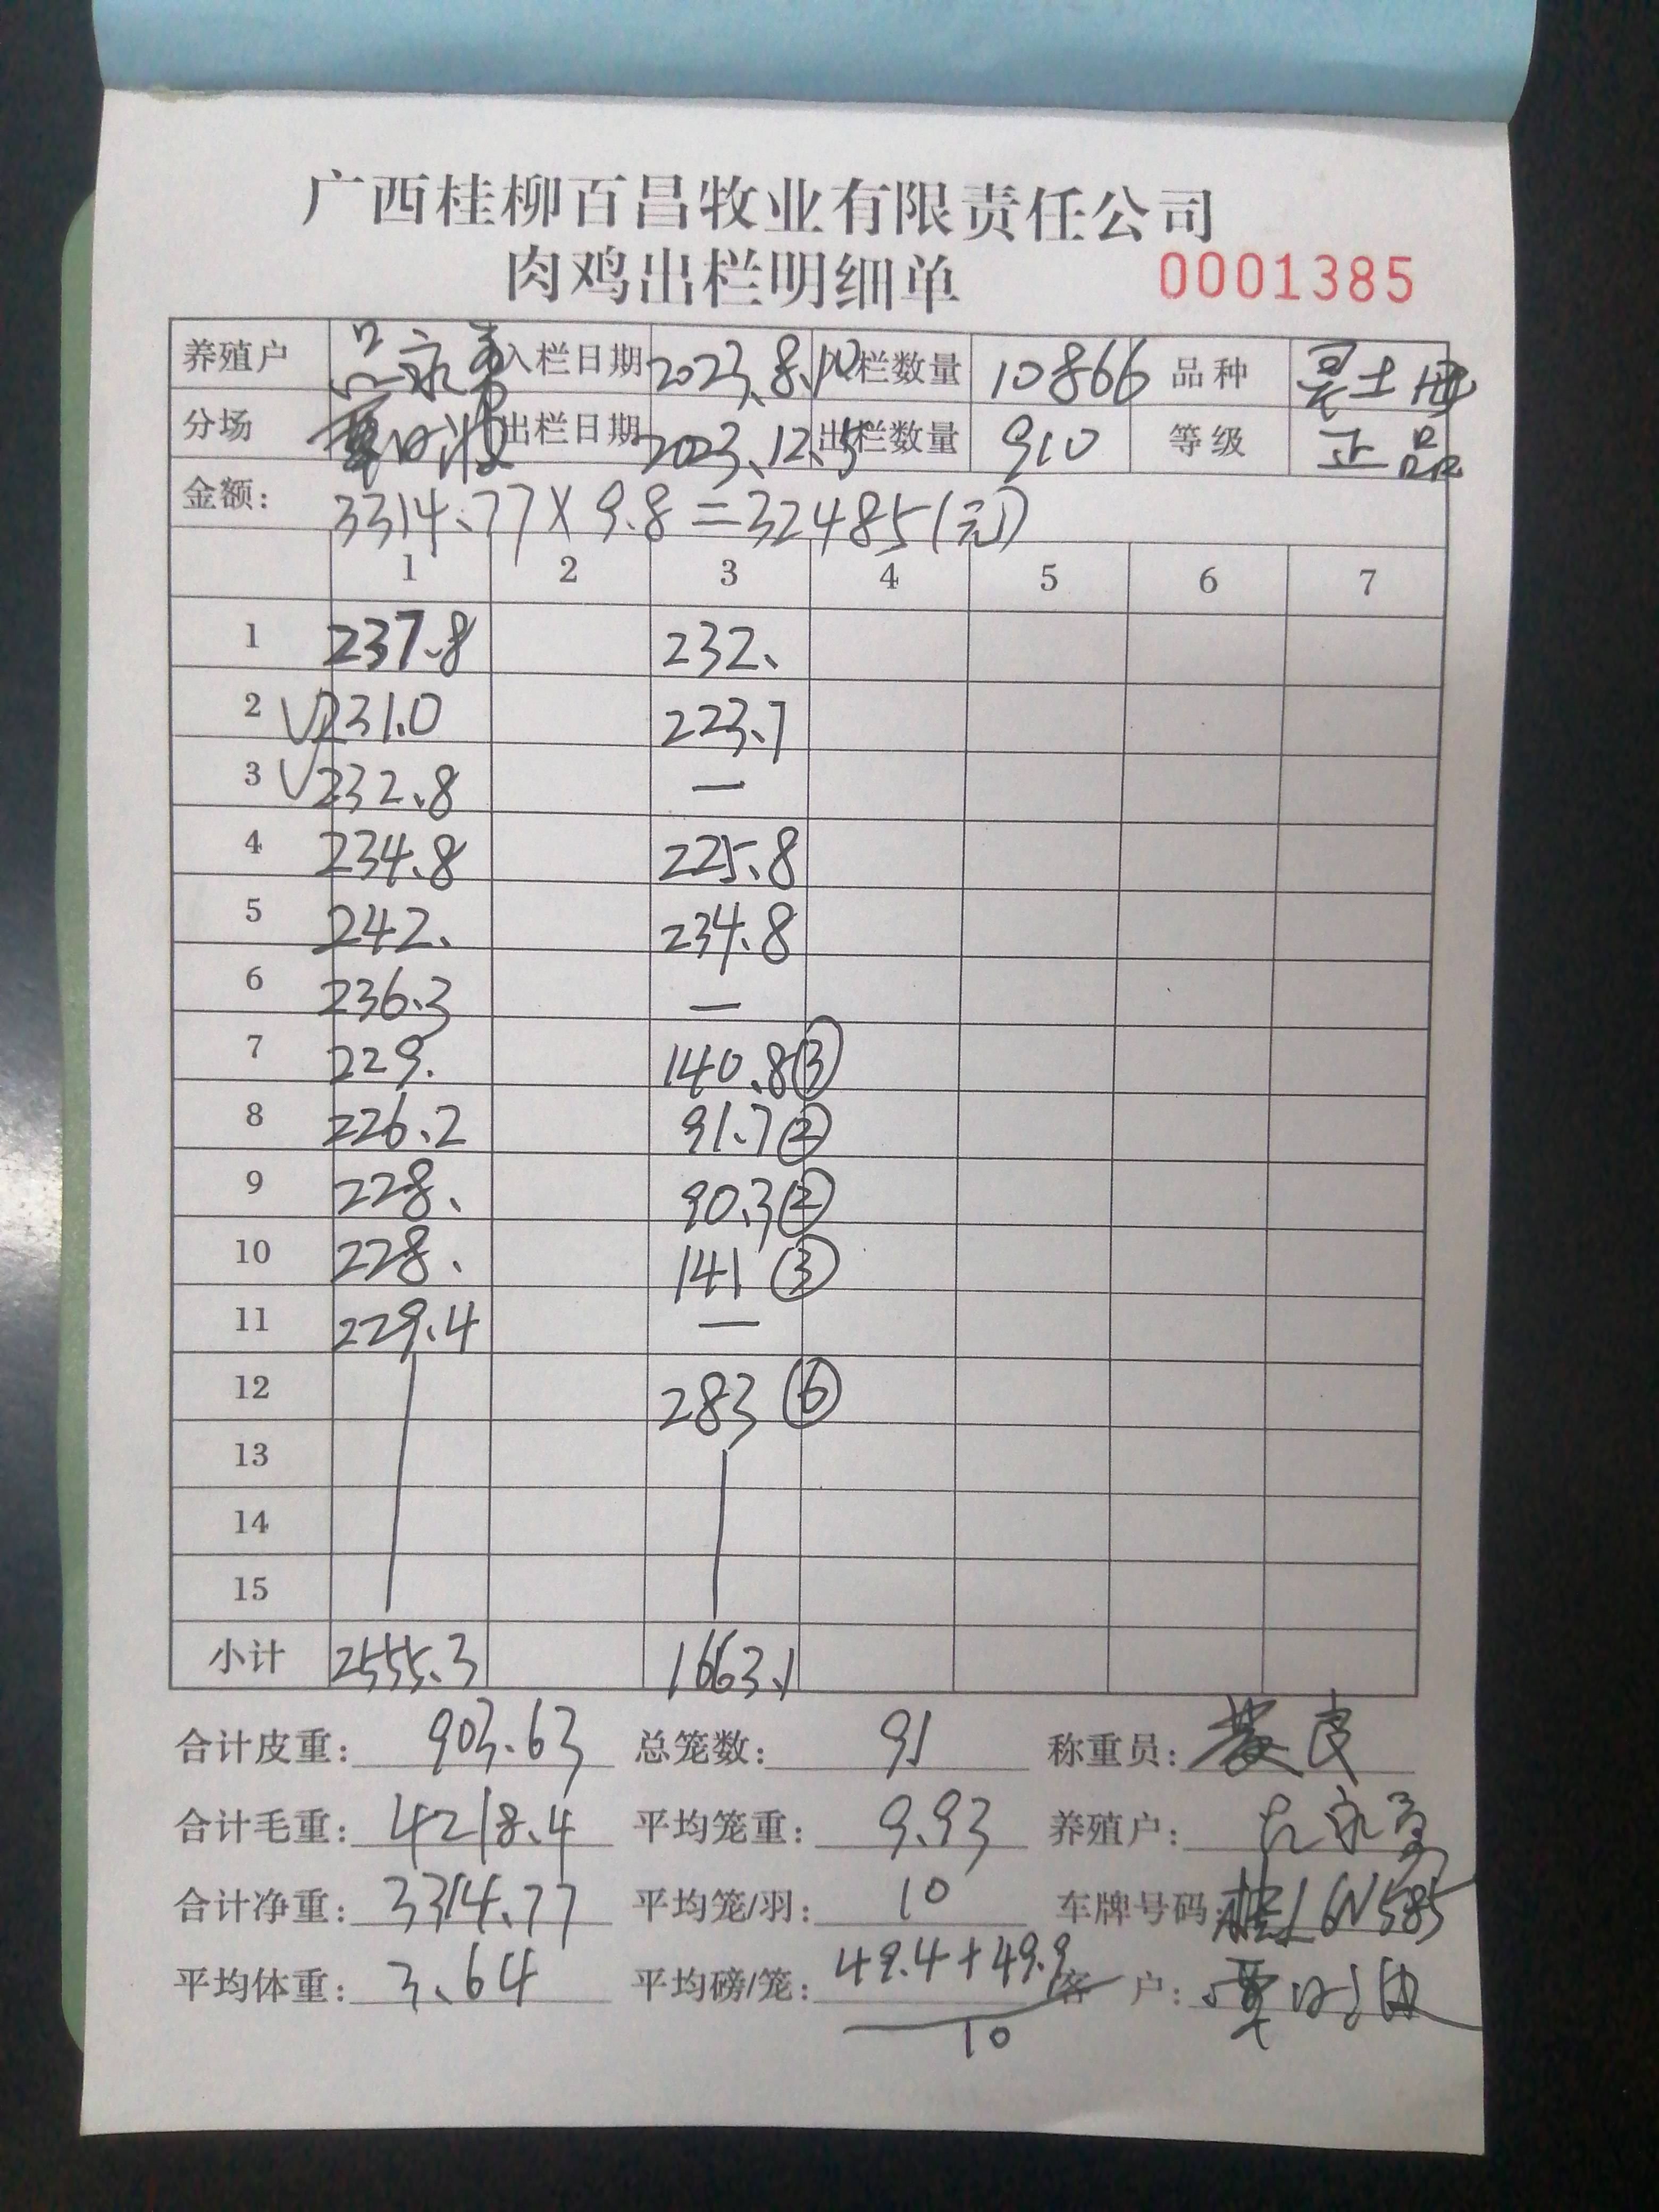 广西桂柳百昌牧业有限责任公司
肉鸡出栏明细单 0001385
养殖户 吕永 入栏日期 2023.8.10 入栏数量 10866 品种 土
分场 出栏日期 2023.12.5 出栏数量 910 等级 正品
金额: 3314.77X9.8=32485(元)
1 2 3 4 5 6 7
1 237.8 232.
2 √231.0 223.7
3 √232.8 —
4 234.8 225.8
5 242. 234.8
6 236.3 —
7 229. 140.8③
8 226.2 91.7②
9 228. 90.3②
10 228. 141 ③
11 229.4 —
12 283 ⑥
13
14
15
小计 2555.3 1663.1
合计皮重: 903.63 总笼数: 91 称重员: 良
合计毛重: 4218.4 平均笼重: 9.93 养殖户: 吕永
合计净重: 3314.77 平均笼/羽: 10 车牌号码: 桂L6V585
平均体重: 3.64 平均磅/笼: 49.4+49.9 客 户: 覃
10